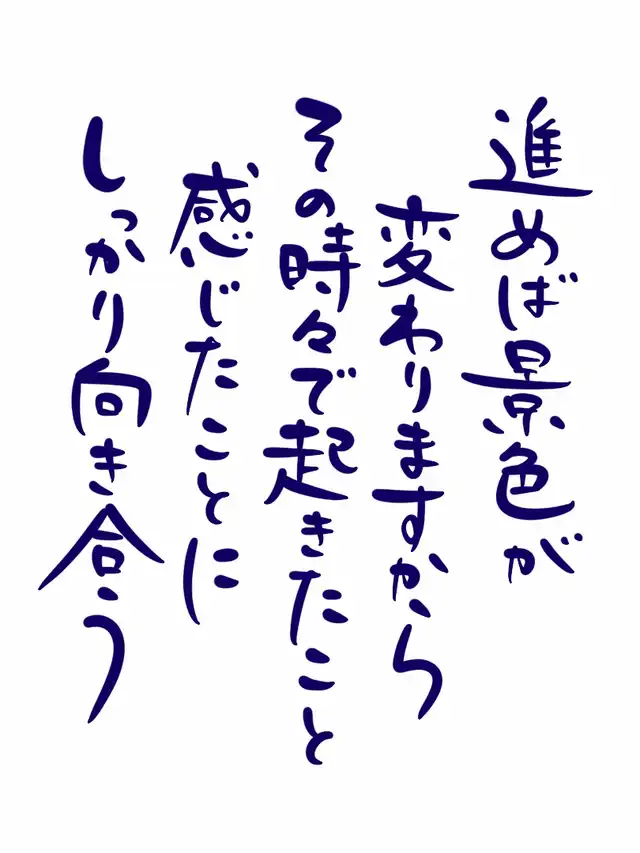 進めば景色が
変わりますから
その時々で起きたこと
感じたことに
しっかり向き合う